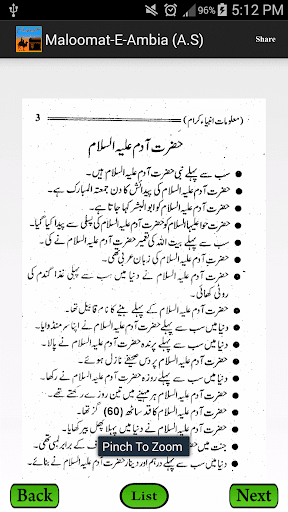 96% 5:12 PM
Maloomat-E-Ambia (A.S) Share
3 (معلومات انبیاء کرام)
حضرت آدم علیہ السلام
سب سے پہلے نبی حضرت آدم علیہ السلام ہیں۔
حضرت آدم علیہ السلام کی پیدائش کا دن جمعتہ المبارک ہے۔
حضرت آدم علیہ السلام کو ابوالبشر کہا جاتا ہے۔
حضرت حوا علیہا السلام کو حضرت آدم علیہ السلام کی پسلی سے پیدا کیا گیا۔
سب سے پہلے بیت اللہ کی تعمیر حضرت آدم علیہ السلام نے کی۔
حضرت آدم علیہ السلام کی زبان عربی تھی۔
حضرت آدم علیہ السلام نے دنیا میں سب سے پہلی غذا گندم کی
روٹی کھائی۔
حضرت آدم علیہ السلام کے پہلے بیٹے کا نام قابیل تھا۔
دنیا میں سب سے پہلے حضرت آدم علیہ السلام نے اپنا سر منڈوایا۔
دنیا میں سب سے پہلے پرندہ حضرت آدم علیہ السلام نے پالا۔
حضرت آدم علیہ السلام پر دس صحیفے نازل ہوئے۔
دنیا میں سب سے پہلے روزہ حضرت آدم علیہ السلام نے رکھا۔
حضرت آدم علیہ السلام ہر مہینے میں تین روزے رکھتے تھے۔
حضرت آدم علیہ السلام کا قد ساٹھ (60) گز تھا۔
حضرت آدم علیہ السلام نے دنیا میں پہلا پھل بیر کھایا۔
جنت میں حضرت آدم کے برابر لمبی تھی۔
دنیا میں سب سے پہلے درہم اور دینار حضرت آدم علیہ السلام نے بنائے۔
Pinch To Zoom
Back List Next